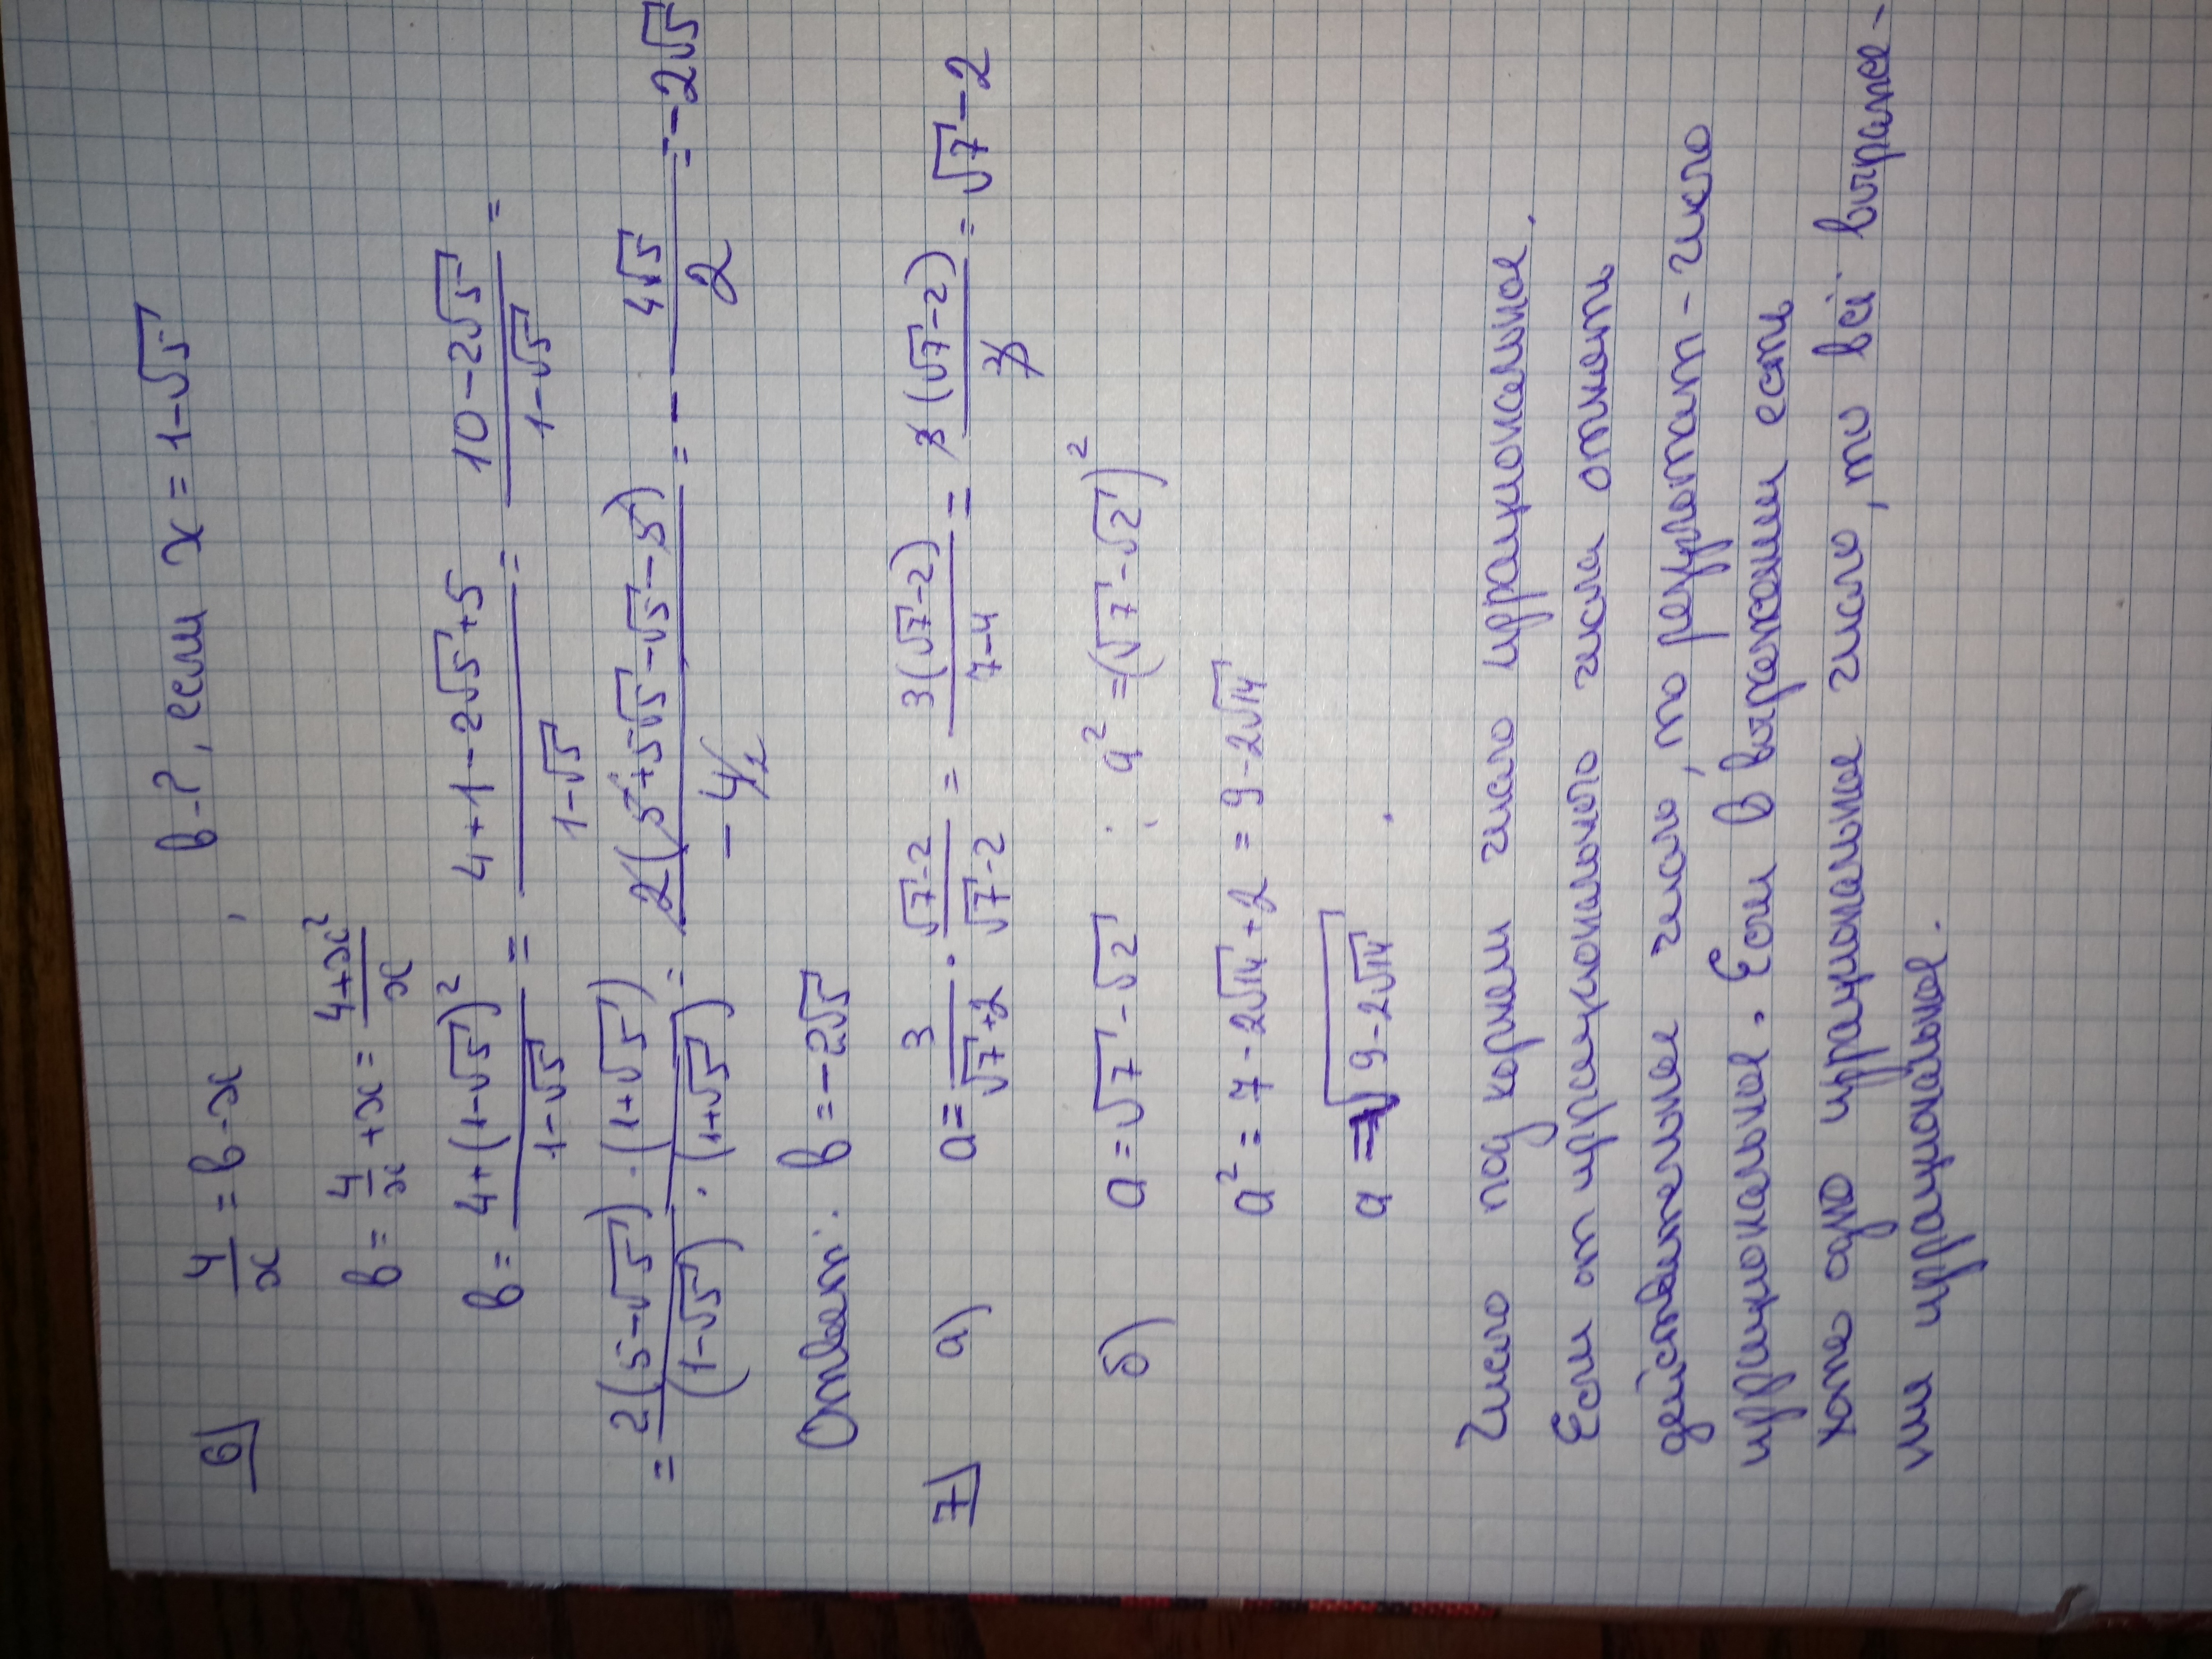 6) 4/x = в - x , в - ?, если x = 1-√5
в = 4/x + x = (4+x²)/x
в = (4+(1-√5)²)/(1-√5) = (4+1-2√5+5)/(1-√5) = (10-2√5)/(1-√5) =
= (2(5-√5)·(1+√5))/((1-√5)·(1+√5)) = (2(5+5√5-√5-5))/(-4/2) = - 4√5/2 = -2√5
Ответ: в = -2√5
7) а) a = 3/(√7+2) · (√7-2)/(√7-2) = (3(√7-2))/(7-4) = (3(√7-2))/3 = √7-2
б) a = √7 - √2 ; a² = (√7-√2)²
a² = 7 - 2√14 + 2 = 9 - 2√14
a = √(9-2√14) .
Число под корнем число иррациональное.
Если от иррационального числа отнять
действительное число, то результат - число
иррациональное. Если в выражении есть
хоть одно иррациональное число, то всё выраже-
ние иррациональное.